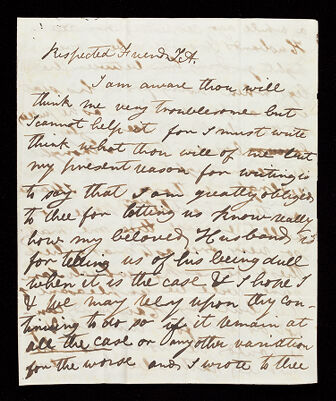 Respected Friend T.A.
I am aware thou will
think me very troublesome but
I cannot help it for I must write
think what thou will of me but
my present reason for writing is
to say that I am greatly obliged
to thee for letting us know really
how my beloved Husband is
for telling us of his being dull
when it is the case & I hope I
& we may rely upon thy con-
tinuing to do so if it remain at
all the case or any other variation
for the worse and I wrote to thee